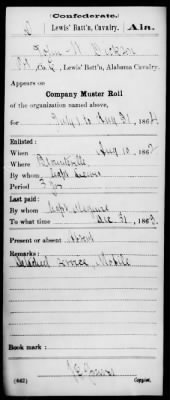 (Confederate.)
D Lewis' Batt'n, Cavalry. Ala.
John W
Pvt, Co. E, Lewis' Batt'n, Alabama Cavalry.
Appears on
Company Muster Roll
of the organization named above,
for July 1 to Aug 31, 1864.
Enlisted:
When Aug 10, 1862
Where Blountsville
By whom Capt Lewis
Period 3 yrs
Last paid:
By whom Capt
To what time Dec 31, 1863.
Present or absent Absent
Remarks:
Detached service, Mobile
Book mark:
(642) Copyist.